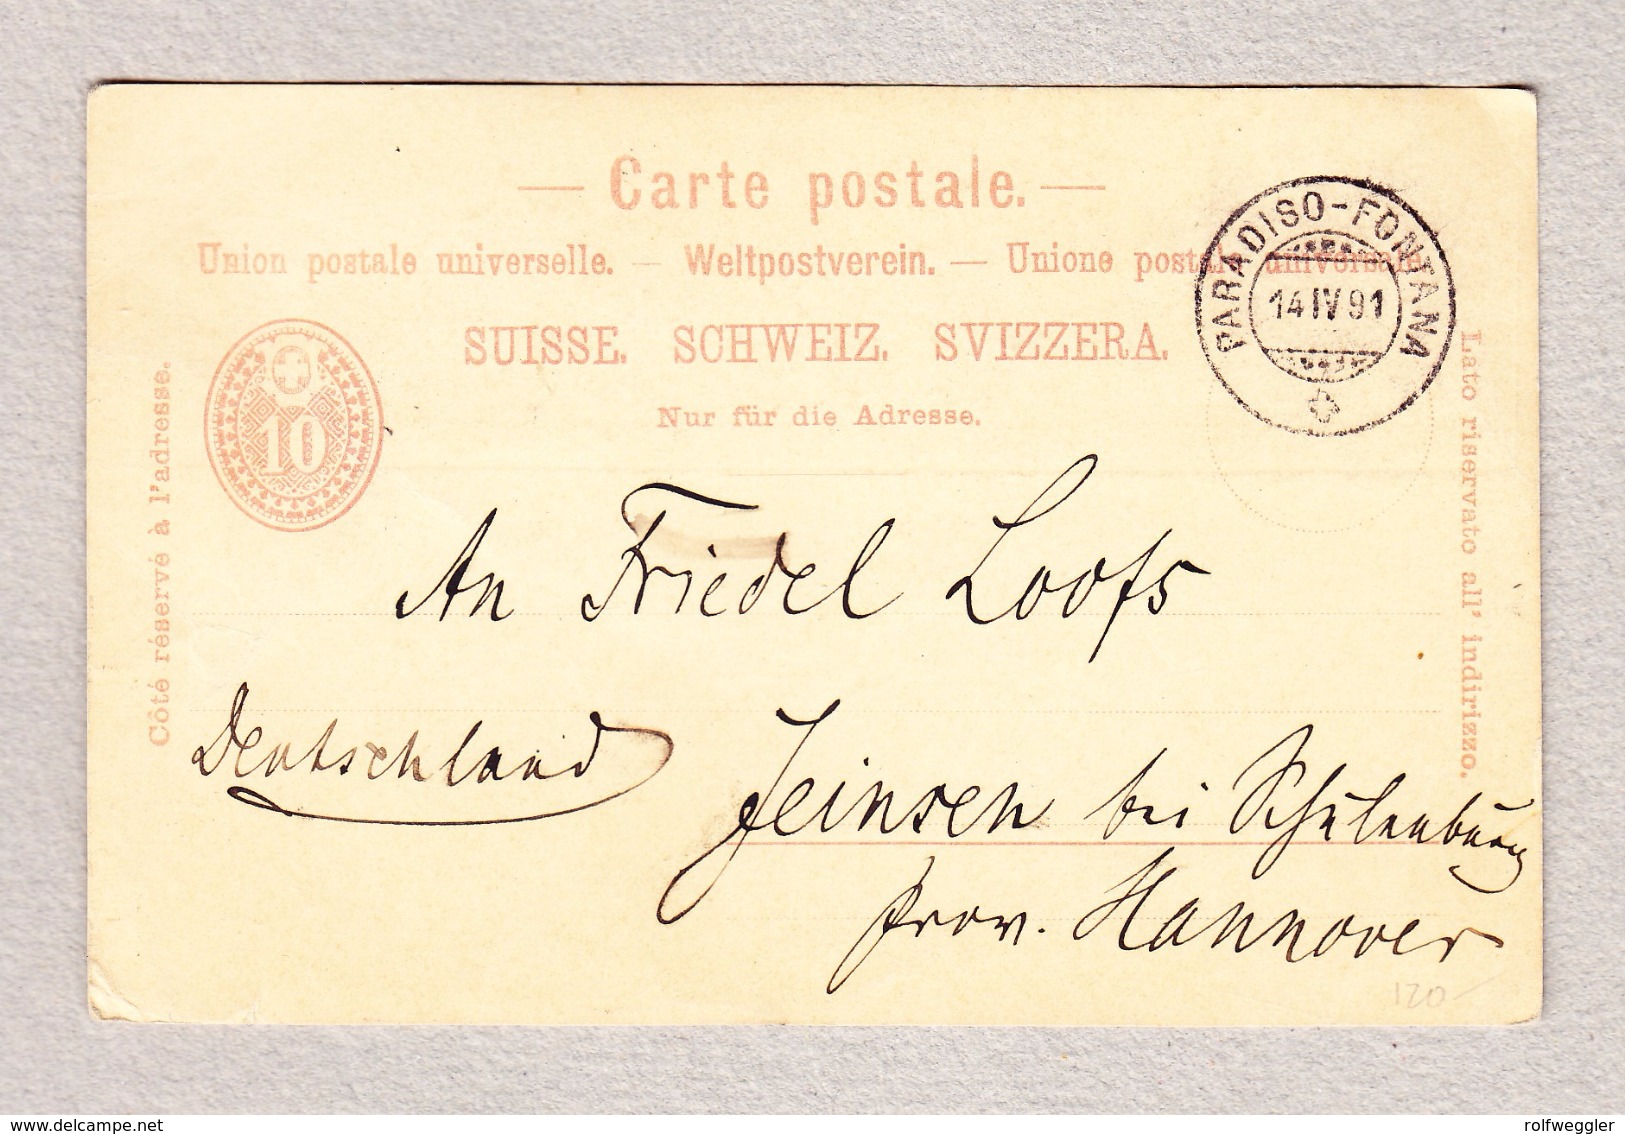 — Carte postale. —
Union postale universelle. — Weltpostverein. — Unione postale universale.
SUISSE. SCHWEIZ. SVIZZERA.
Nur für die Adresse.
Côté réservé à l'adresse.
Lato riservato all' indirizzo.
10
PARADISO-FONTANA
14 IV 91
An Friedel Loofs
Deutschland
Jeinsen bei Schulenburg
Prov. Hannover
120
delcampe.net
rolfweggler